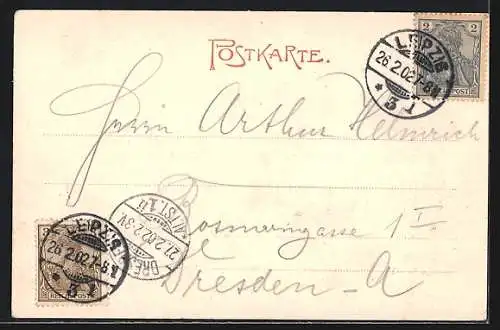 POSTKARTE.
2
LEIPZIG
26.2.02.7-8N.
* 3 I
Herrn Arthur Helmrich
LEIPZIG
26.2.02.7-8N.
* 3 I
DRESDEN
27.2.02.2-3V.
ALTST. 1.
I
Dresden-A